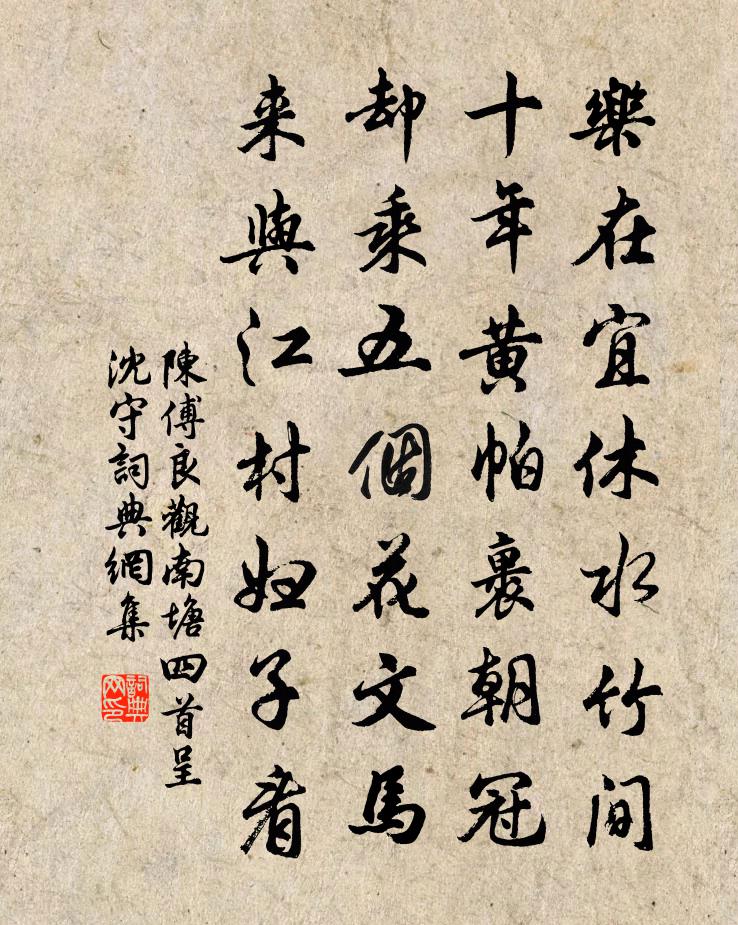 樂在宜休水竹間
十年黃帕裹朝冠
却乘五個花文馬
来與江村妇子看
陳傅良觀南塘四首呈
沈守詞典網集
詞典
网印